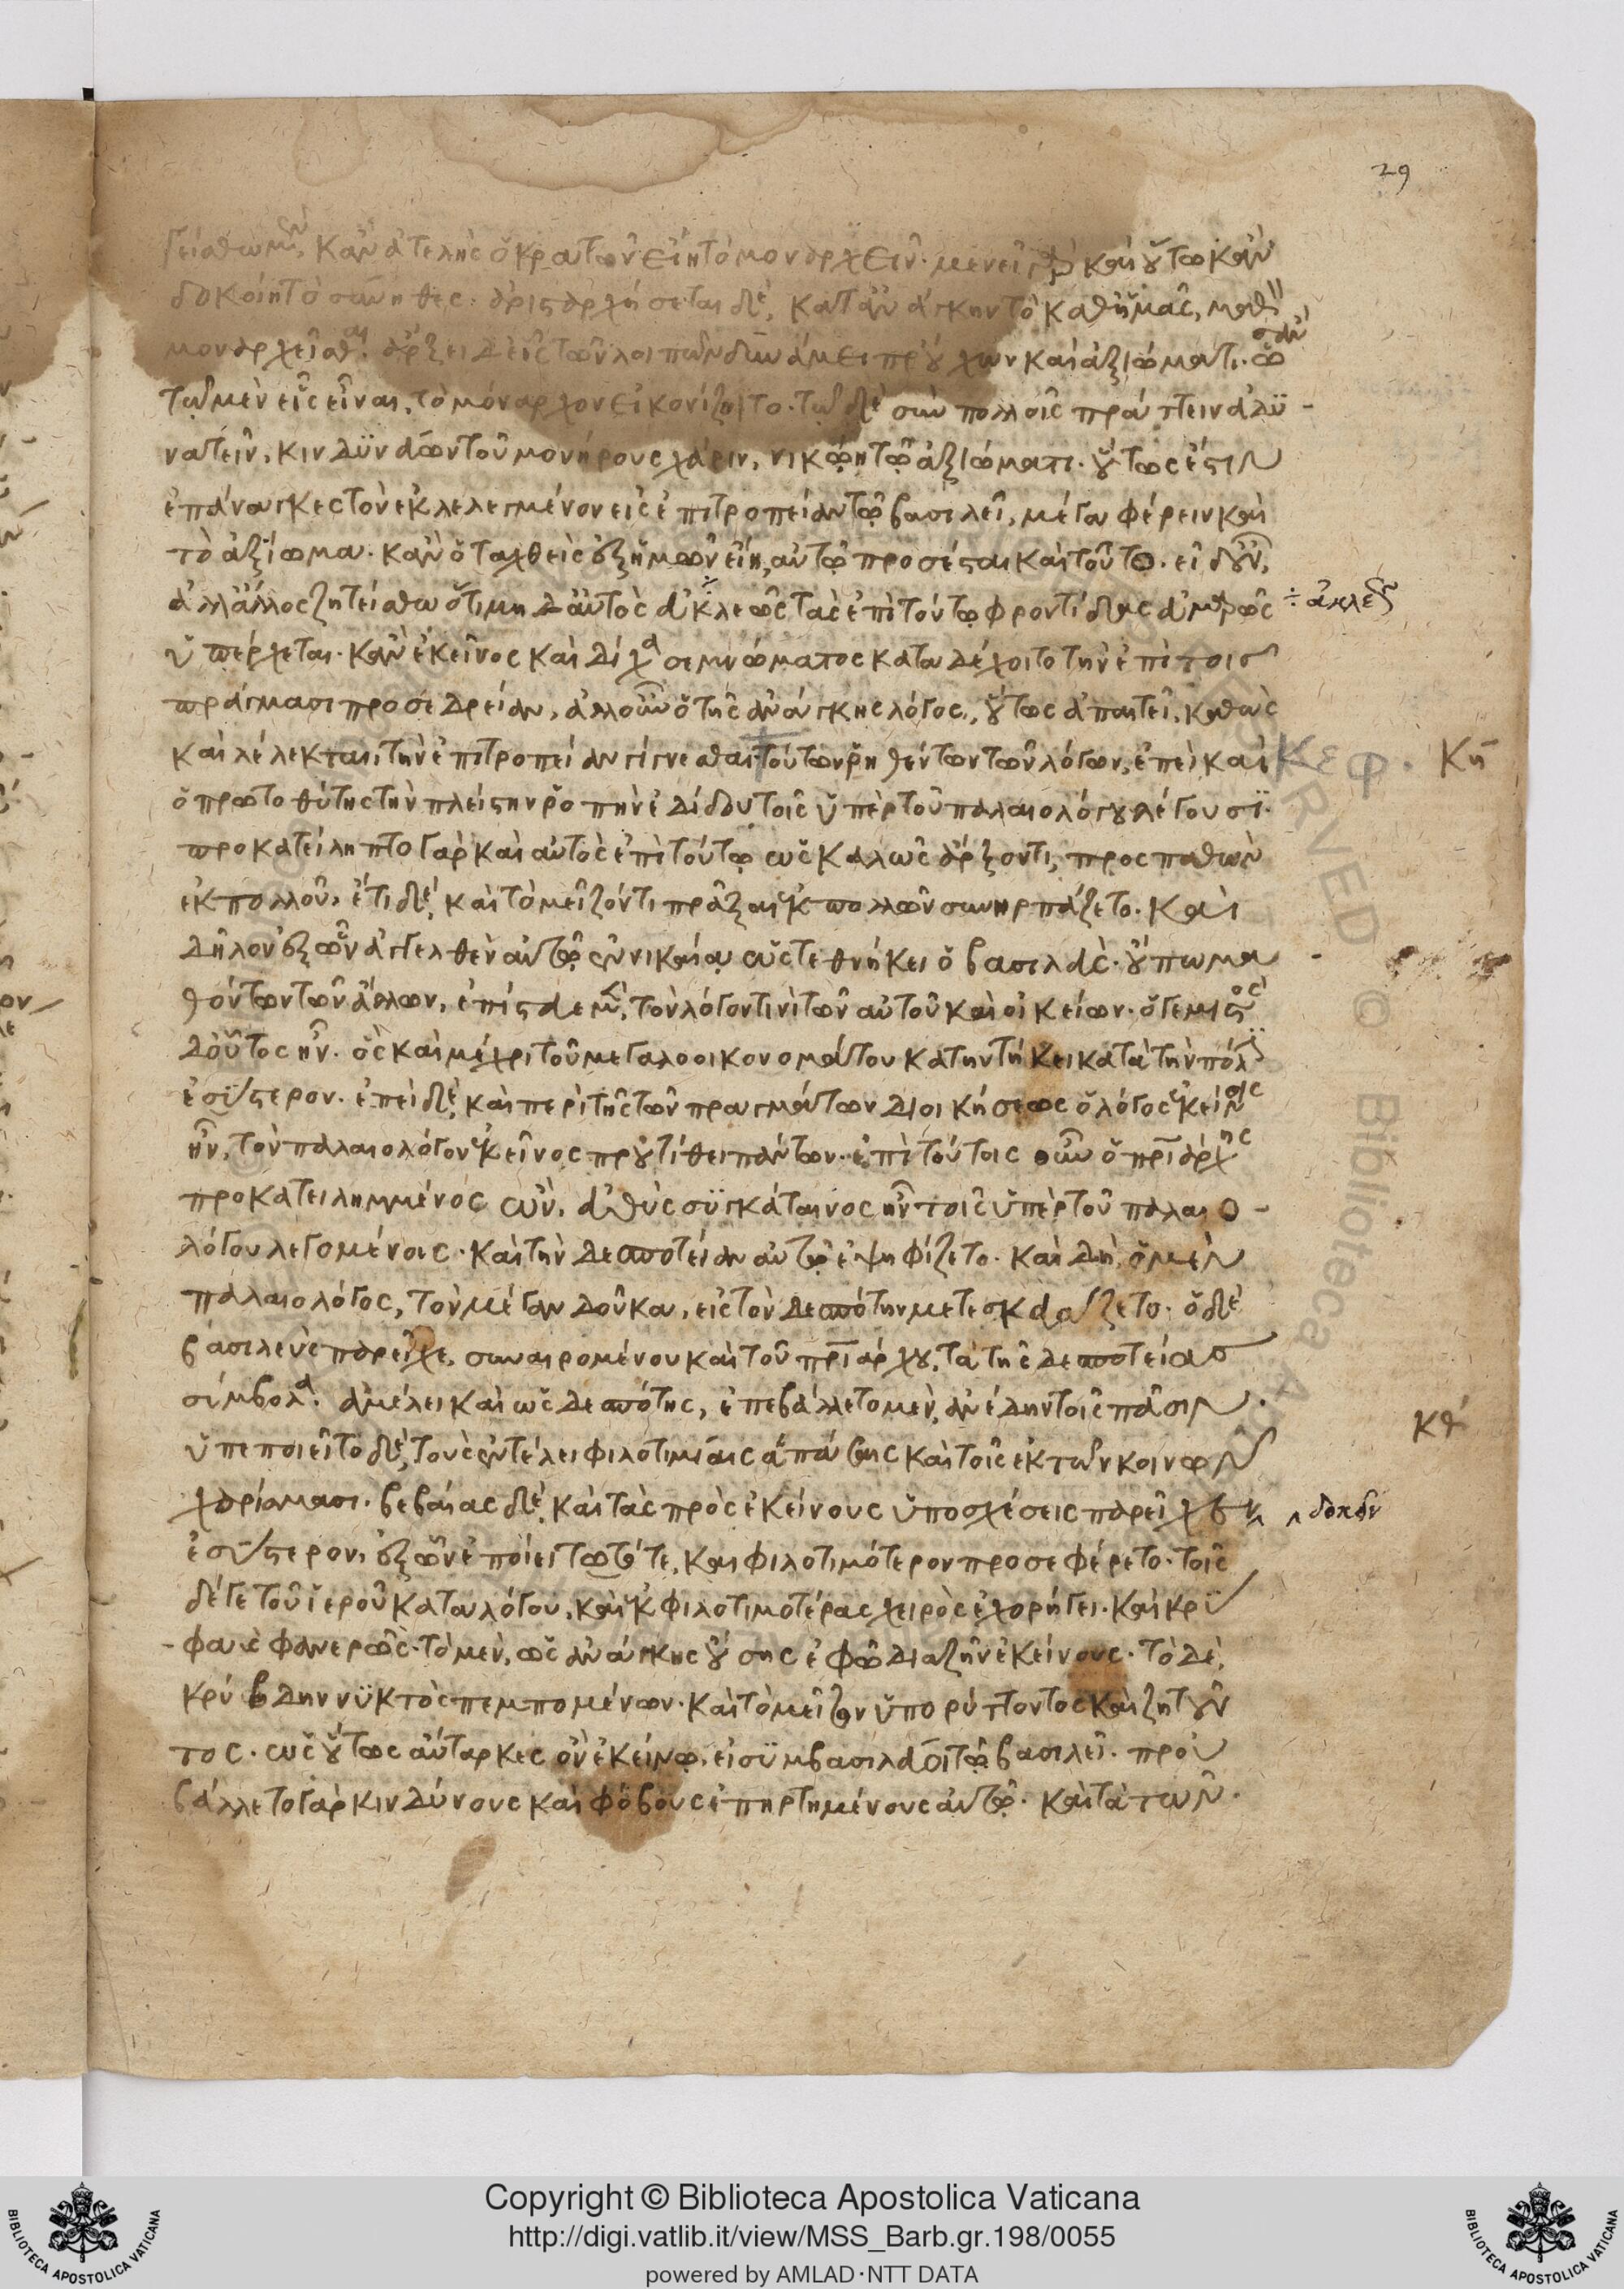 29
κἂν ἀτελὴς ὁ κρατῶν εἴη τὸ μοναρχεῖν· μενεῖ καὶ οὕτω κἂν
δοκοίη τὸ σύνηθες· κατ' ἀνάγκην τὸ καθ' ἡμᾶς,
μοναρχεῖσθαι. ἄρξει δ' εἷς τῶν λοιπῶν ὑπερέχων καὶ ἀξιώματι·
τῷ μὲν εἷς εἶναι, τὸ μόναρχον εἰκονίζοιτο. τῷ δὲ σὺν πολλοῖς πράττειν ἀδυ-
νατεῖν, κινδυνεύων τοῦ μονήρους χάριν, νικῴη τῷ ἀξιώματι. οὕτως ἐστὶν
ἐπάναγκες τὸν ἐκλελεγμένον εἰς ἐπιτροπείαν τῷ βασιλεῖ, μέγα φέρειν καὶ
τὸ ἀξίωμα. κἂν ὁ ταχθεὶς ἐξ ἡμῶν εἴη, αὐτῷ προσέσται καὶ τοῦτο. εἰ δ' οὖν,
ἀλλ' ἄλλος ζητείσθω ὅτι μὴ δ' αὐτὸς ἀκλεῶς τὰς ἐπὶ τούτῳ φροντίδας
÷ ἀκλεῶς
ὑπέρχεται. κἂν ἐκεῖνος καὶ δίχα σεμνώματος καταδέχοιτο τὴν ἐπὶ τοῖς
πράγμασι προσεδρείαν, ἀλλ' οὖν ὁ τῆς ἀνάγκης λόγος, οὕτως ἀπαιτεῖ, καθὼς
καὶ λέλεκται, τὴν ἐπιτροπείαν γίγνεσθαι· τούτων ῥηθέντων τῶν λόγων, ἐπεὶ καὶ
Κεφ. κη
ὁ πρωτοθύτης τὴν πλείστην ῥοπὴν ἐδίδου τοῖς ὑπὲρ τοῦ παλαιολόγου λέγουσι·
προκατείληπτο γὰρ καὶ αὐτὸς ἐπὶ τούτῳ ὡς καλῶς ἄρξοντι, προσπαθῶν
ἐκ πολλοῦ. ἔτι δὲ καὶ τὸ μεῖζόν τι πρᾶξαι ἐκ πολλῶν συνηρπάζετο. καὶ
δῆλον ἐξ ὧν ἀγγελθὲν αὐτῷ ἐν νικαίᾳ ὡς τεθνήκει ὁ βασιλεὺς. οὔπω μα
θόντων τῶν ἄλλων, ἐπίστευε μὲν τὸν λόγον τινὶ τῶν αὐτοῦ καὶ οἰκείων. ὁ γεμιστὸς
δ' οὗτος ἦν. ὃς καὶ μέχρι τοῦ μεγαλοοικονομάτου κατηντήκει κατὰ τὴν πόλιν
ἐσύστερον. ἐπεὶ δὲ καὶ περὶ τῆς τῶν πραγμάτων διοικήσεως ὁ λόγος ἐκείνοις
ἦν, τὸν παλαιολόγον ἐκεῖνος προὐτίθει πάντων. ἐπὶ τούτοις οὖν ὁ πριάρχης
προκατειλημμένος ὤν, εὐθὺς συγκάταινος ἦν τοῖς ὑπὲρ τοῦ παλαιο-
λόγου λεγομένοις. καὶ τὴν δεσποτείαν αὐτῷ ἐψηφίζετο. καὶ δὴ, ὁ μὲν
παλαιολόγος, τὸν μέγαν δοῦκα, εἰς τὸν δεσπότην μετεσκευάζετο. ὁ δὲ
βασιλεὺς παρεῖχε, συναιρομένου καὶ τοῦ πριάρχου, τὰ τῆς δεσποτείας
σύμβολα. ἀμέλει καὶ ὡς δεσπότης, ἐπεβάλλετο μὲν, ἀνέδην τοῖς πᾶσιν.
κθ
ὑπεποιεῖτο δὲ, τοὺς ἐν τέλει φιλοτιμίαις ἁπάσαις καὶ τοῖς ἐκ τῶν κοινῶν
χαρίσμασι. βεβαίας δὲ καὶ τὰς πρὸς ἐκείνους ὑποσχέσεις παρεῖχεν
ἐσύστερον, ἐξ ὧν ἐποίει τῷ τότε, καὶ φιλοτιμότερον προσεφέρετο. τοῖς
δέ γε τοῦ ἱεροῦ καταλόγου, καὶ ἐκ φιλοτιμοτέρας χειρὸς ἐχορήγει. καὶ κρύ
φα καὶ φανερῶς· τὸ μὲν, ὡς ἀνάγκης οὔσης ἐφ' ᾧ διαζῆν ἐκείνους. τὸ δὲ,
κρύβδην νυκτὸς πεμπομένων. καὶ τὸ μεῖζον ὑπορύττοντος καὶ ζητοῦν
τος. ὡς οὕτως αὔταρκες ὂν ἐκείνῳ, εἰ συμβασιλεύοι τῷ βασιλεῖ. προὐ
βάλλετο γὰρ κινδύνους καὶ φόβους ἐπηρτημένους αὐτῷ. καὶ τὰ τῶν
Copyright © Biblioteca Apostolica Vaticana
http://digi.vatlib.it/view/MSS_Barb.gr.198/0055
powered by AMLAD·NTT DATA
BIBLIOTECA APOSTOLICA VATICANA
BIBLIOTECA APOSTOLICA VATICANA